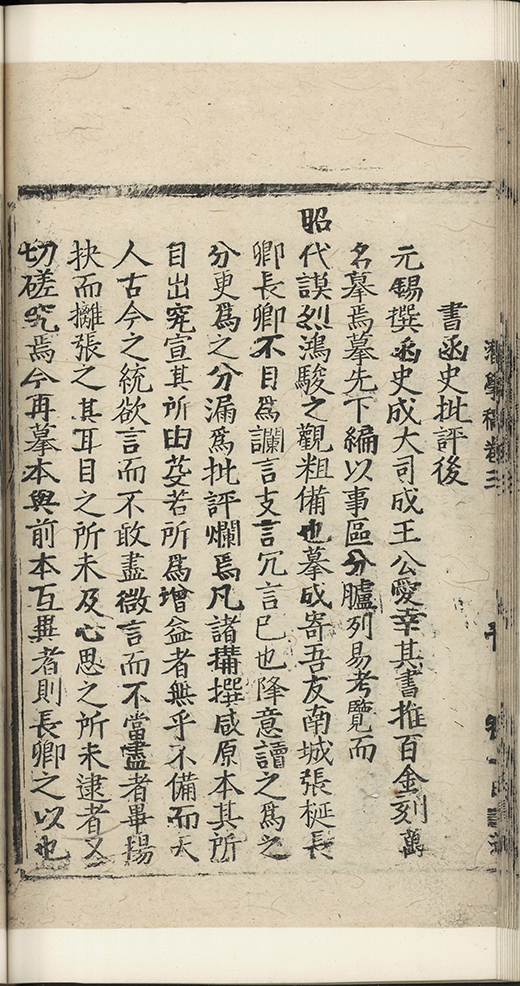 書函史批評後
元錫撰函史成大司成王公愛幸其書推百金刻萬
名摹焉摹先下編以事區分臚列易考覽而
昭
代謨烈鴻駿之觀粗備也摹成寄吾友南城張榳長
卿長卿不目為讕言支言冗言已也降意讀之為之
分更為之分漏為批評爛焉凡諸搆撰咸原本其所
目出究宣其所由荽若所為增益者無乎不備而天
人古今之統欲言而不敢盡微言而不當盡者畢揚
抉而攡張之其耳目之所未及心思之所未逮者又
切磋究焉今再摹本與前本互異者則長卿之以也
潛學稿卷三